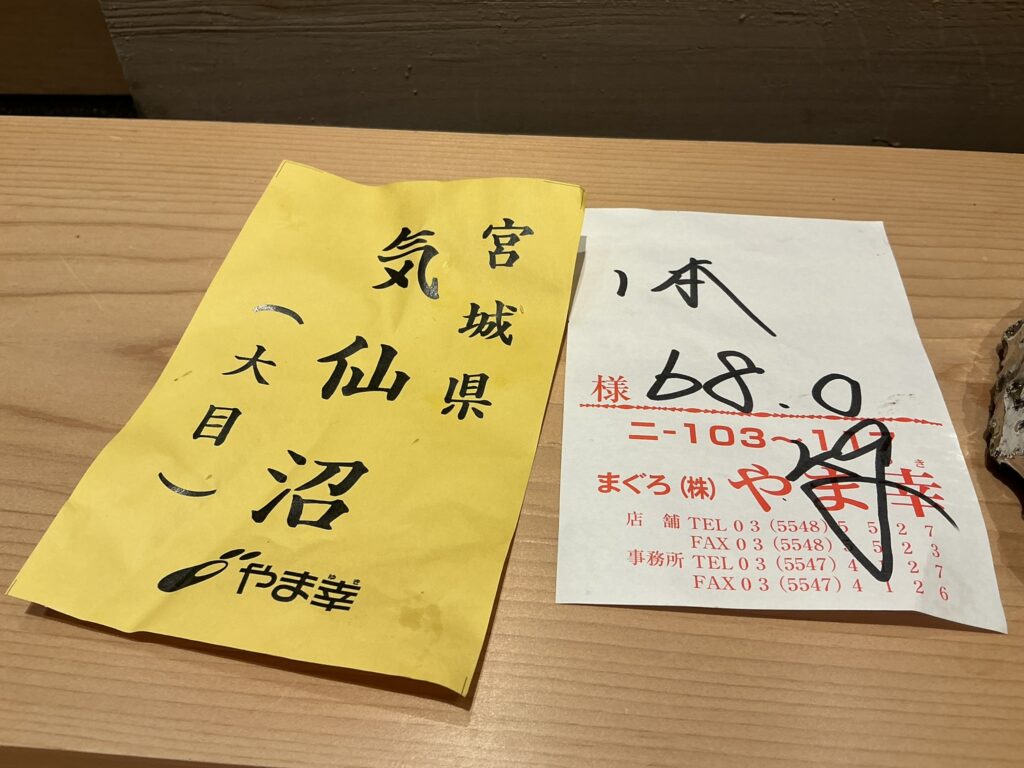 宮城県
気仙沼
(大目)
やま幸
ゆき
1本
様 68.0
ニ-103~117
まぐろ(株)やま幸
店舗 TEL03(5548)5527
FAX03(5548)5523
事務所 TEL03(5547)4127
FAX03(5547)4126